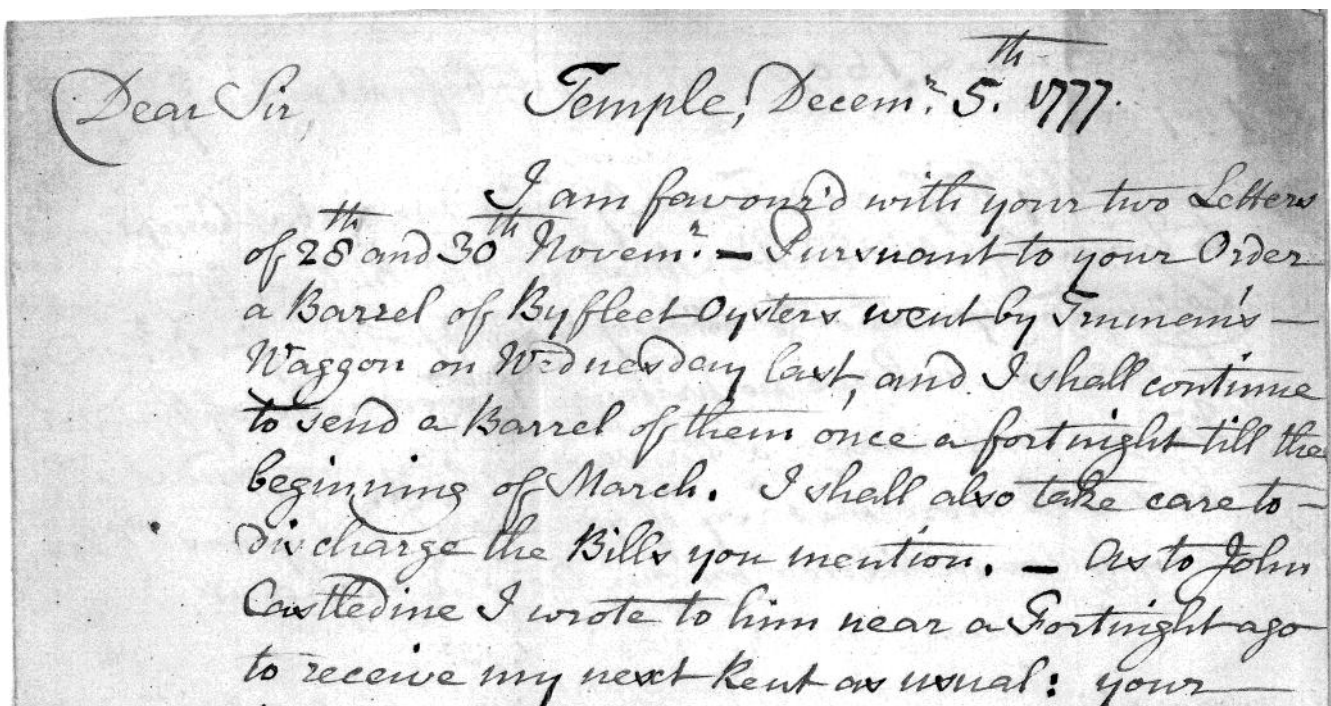 Dear Sir, Temple, Decemr. 5th. 1777.
I am favour'd with your two Letters
of 28th and 30th Novemr. — Pursuant to your Order
a Barrel of Byfleet Oysters went by Truman's —
Waggon on Wednesday last, and I shall continue
to send a Barrel of them once a fortnight till the
beginning of March. I shall also take care to —
discharge the Bills you mention. — As to John
Castledine I wrote to him near a Fortnight ago
to receive my next Rent as usual: your —